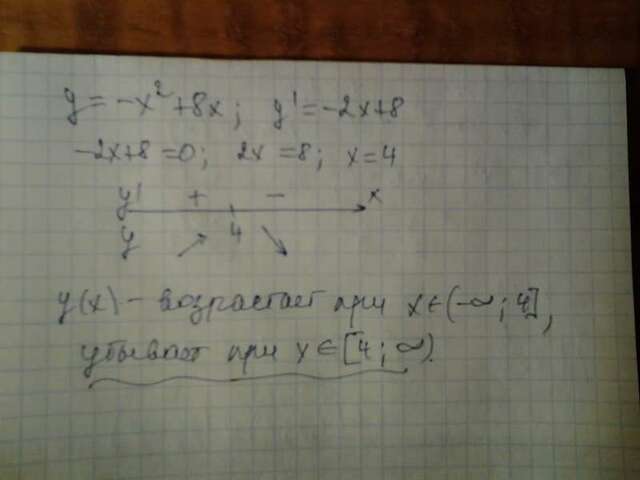 y = -x² + 8x; y' = -2x+8
-2x+8 = 0; 2x = 8; x = 4
y' + - x
y ↗ 4 ↘
y(x) - возрастает при x ∈ (-∞; 4],
убывает при x ∈ [4; ∞).